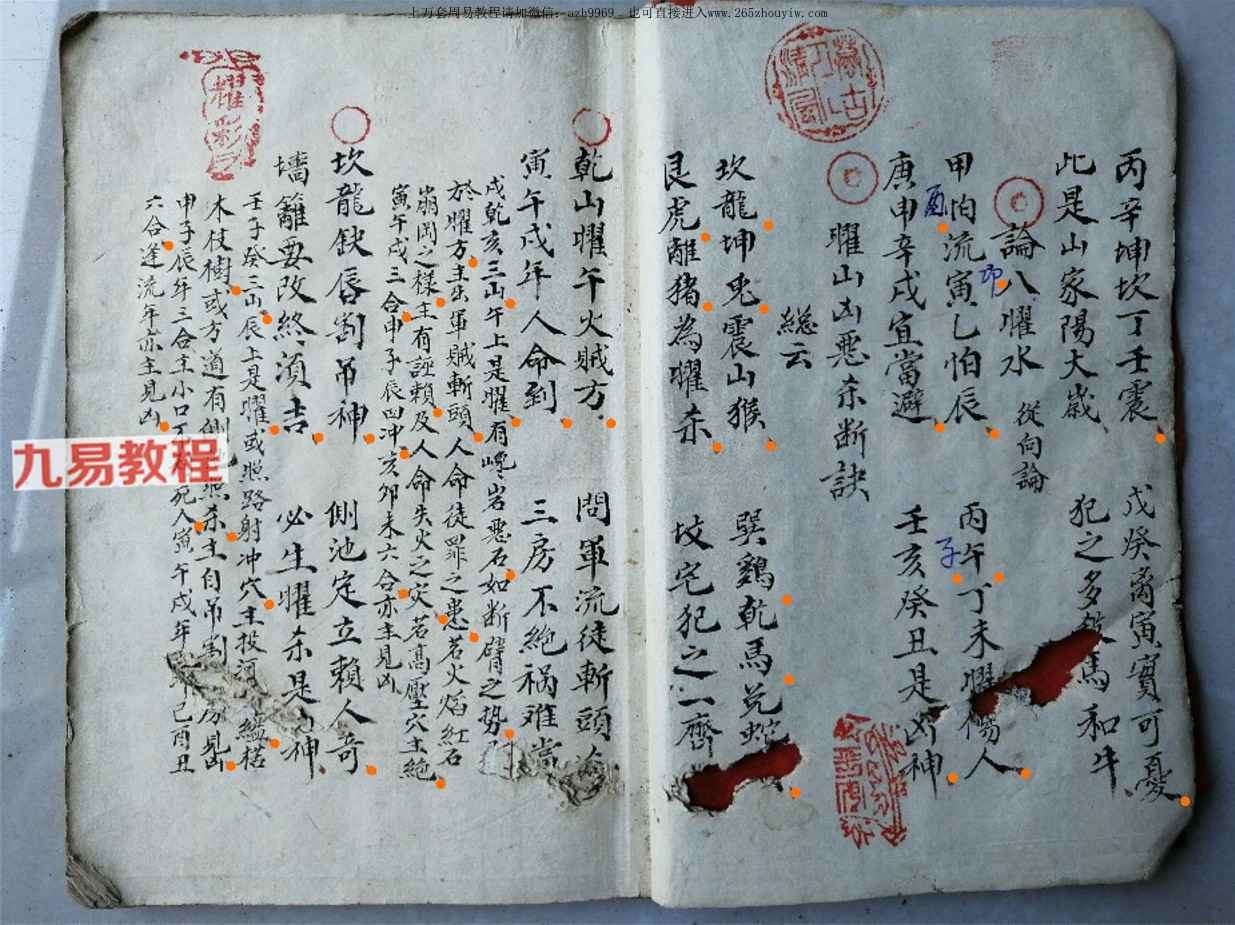 上万套周易教程请加微信：azh9969，也可直接进入www.265zhouyiw.com
丙辛坤坎丁壬震　戊癸离寅實可憂
此是山家陽大歲　犯之多　馬和牛
論八曜水　從向論
甲怕流寅乙怕辰　丙午丁未曜傷人
酉
卯
子
庚申辛戌宜當避　壬亥癸丑是凶神
曜山凶惡杀斷訣
總云
坎龍坤兎震山猴　巽鷄乾馬兑蛇
艮虎離猪為曜杀　坟宅犯之一齊
乾山曜午火賊方　問軍流徒斬頭
寅午戌年人命到　三房不絶祸难當
戌乾亥三山午上是曜有嶢岩惡石如断臂之势
於曜方主出軍賊斬頭人命徒罪之患若火焰紅石
崩岡之樣主有誣賴及人命失火之灾若高壓穴主絶
寅午戌三合申子辰四冲亥卯未六合亦主見凶
坎龍缺唇割吊神　側池定立賴人奇
墻籬要改終須吉　必生曜杀是　神
壬子癸三山辰上是曜或照路射冲穴主投河　縊槎
木枝樹或方道有側池照杀主自吊割　房見凶
申子辰年三合主小口　死人寅午戌年　巳酉丑
六合逢流年亦主見凶
耀彩
九易教程